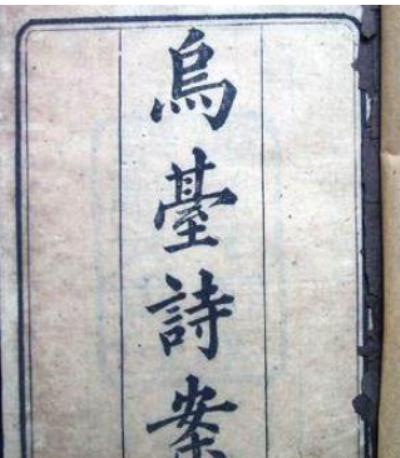 烏臺詩案